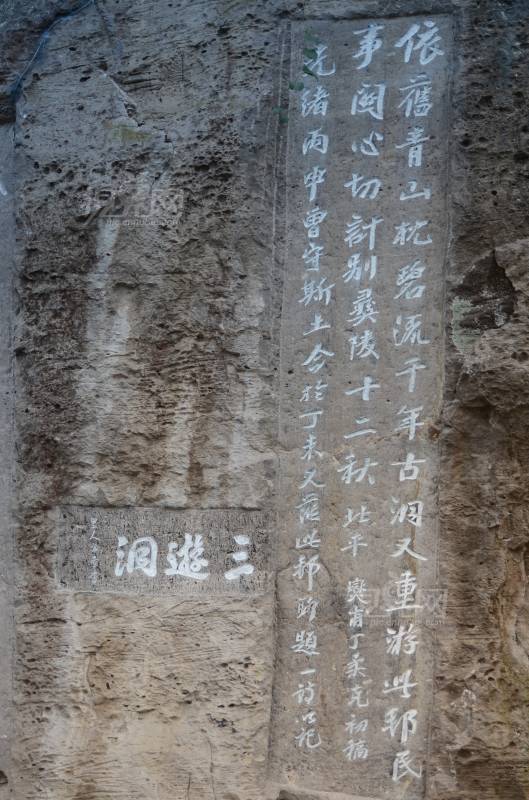 依舊青山枕碧流千年古洞又重游此邦民
事関心切計別彝陵十二秋 北平 爕甫丁柔克初稿
光緒丙申曾守斯土今於丁未又蒞此邦時題一詩以記
三遊洞